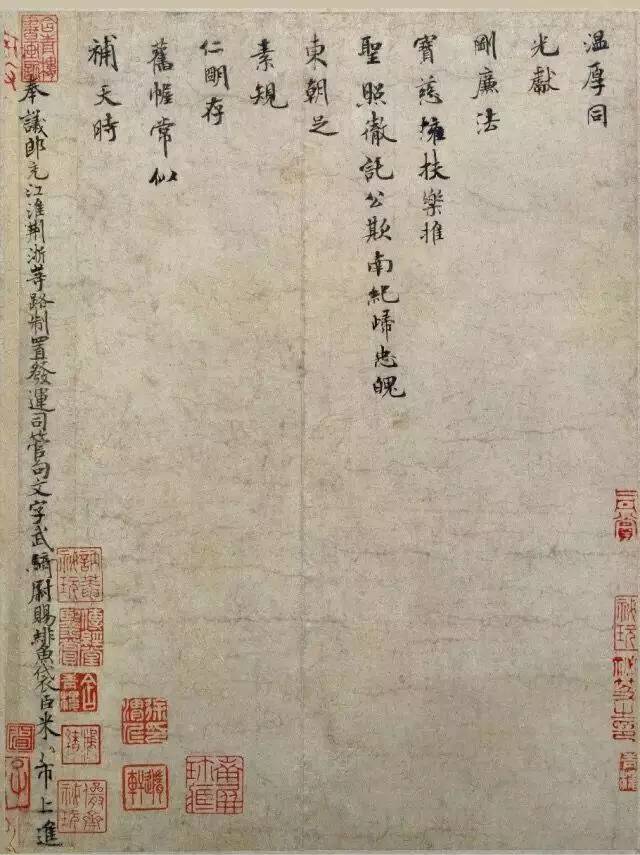 温厚同
光獻
剛廉法
寶慈擁扶樂推
聖照徹託公欺南紀歸忠魄
東朝足
素規
仁明存
舊幄常似
補天時
奉議郎充江淮荊浙等路制置發運司管句文字武騎尉賜緋魚袋臣米芾上進